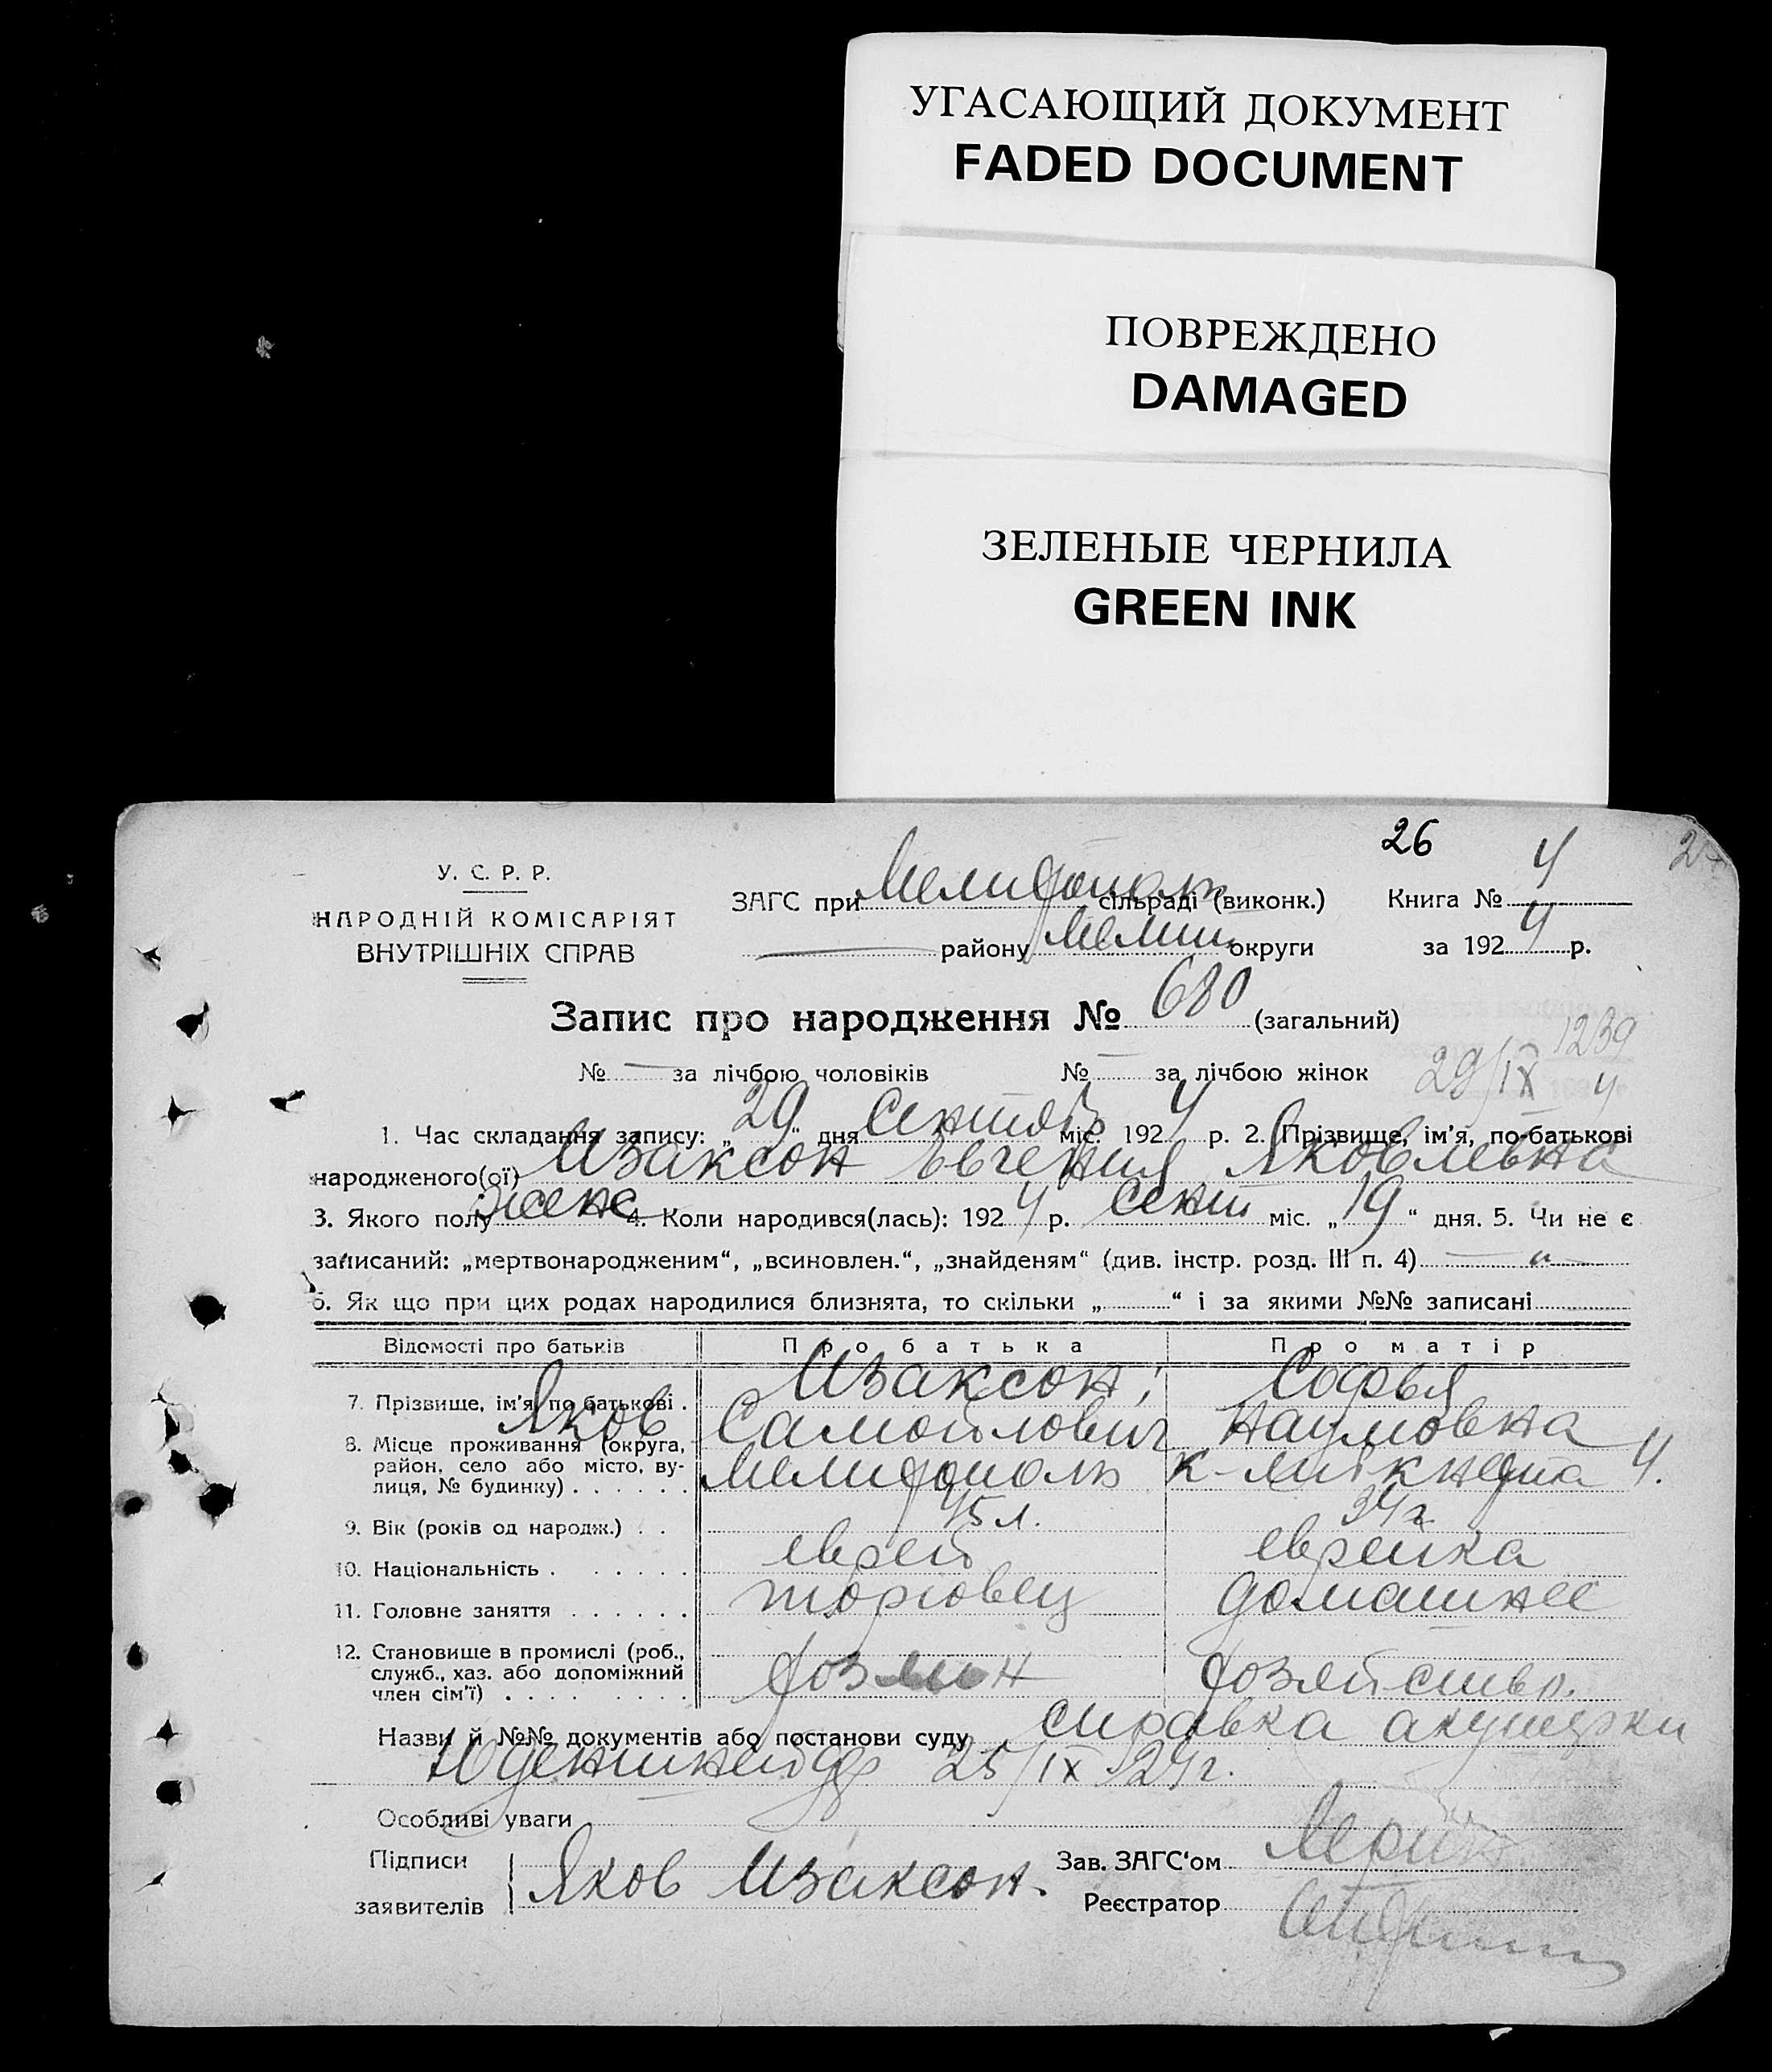 УГАСАЮЩИЙ ДОКУМЕНТ
FADED DOCUMENT
ПОВРЕЖДЕНО
DAMAGED
ЗЕЛЕНЫЕ ЧЕРНИЛА
GREEN INK
26
У. С. Р. Р.
НАРОДНІЙ КОМІСАРІЯТ
ВНУТРІШНІХ СПРАВ
ЗАГС при Мелитополь сільраді (виконк.) Книга № 4
— району Мелит. округи за 1924 р.
Запис про народження № 680 (загальний)
1239
№ — за лічбою чоловіків № — за лічбою жінок 29/IX 4
1. Час складання запису: „29“ дня Сентяб міс. 1924 р. 2. Прізвище, ім’я, по-батькові
народженого(ої) Изаксон Евгения Яковлевна
3. Якого полу женс 4. Коли народився(лась): 1924 р. Сент міс. „19“ дня. 5. Чи не є
записаний: „мертвонародженим“, „всиновлен.“, „знайденям“ (див. інстр. розд. III п. 4) — „ —
6. Як що при цих родах народилися близнята, то скільки „ “ і за якими №№ записані
Відомості про батьків Про батька Про матір
7. Прізвище, ім’я, по батькові . Изаксон, Софья
Яков Самойлович Наумовна
8. Місце проживання (округа,
район, село або місто, ву-
лиця, № будинку) . . . . . . Мелитополь К-Либкнехта 4.
9. Вік (років од народж.) . . 45 л. 34 г.
10. Національність . . . . . . еврей еврейка
11. Головне заняття . . . . . . торговец домашнее
12. Становище в промислі (роб.,
служб., хаз. або допоміжний
член сім’ї) . . . . . . . . . хозяин хозяйство.
Назви й №№ документів або постанови суду справка акушерки
25/IX 24г.
Особливі уваги
Підписи
заявителів Яков Изаксон.
Зав. ЗАГС‘ом
Реєстратор